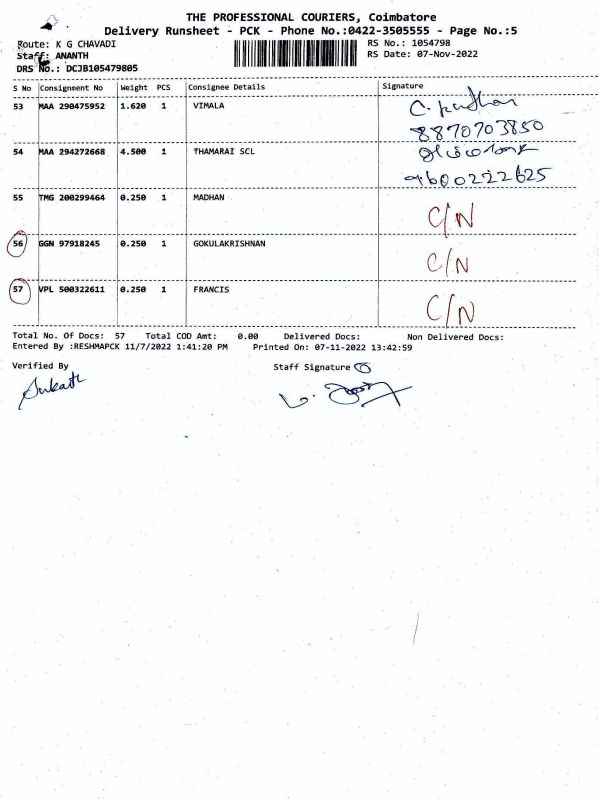 THE PROFESSIONAL COURIERS, Coimbatore
Delivery Runsheet - PCK - Phone No.:0422-3505555 - Page No.:5
Route: K G CHAVADI
RS No.: 1054798
Staff: ANANTH
RS Date: 07-Nov-2022
DRS No.: DCJB105479805
S No Consignment No Weight PCS Consignee Details Signature
53 MAA 290475952 1.620 1 VIMALA
8870703850
54 MAA 294272668 4.500 1 THAMARAI SCL
9600222625
55 TMG 200299464 0.250 1 MADHAN C/N
56 GGN 97918245 0.250 1 GOKULAKRISHNAN C/N
57 VPL 500322611 0.250 1 FRANCIS C/N
Total No. Of Docs: 57 Total COD Amt: 0.00 Delivered Docs: Non Delivered Docs:
Entered By :RESHMAPCK 11/7/2022 1:41:20 PM Printed On: 07-11-2022 13:42:59
Verified By Staff Signature